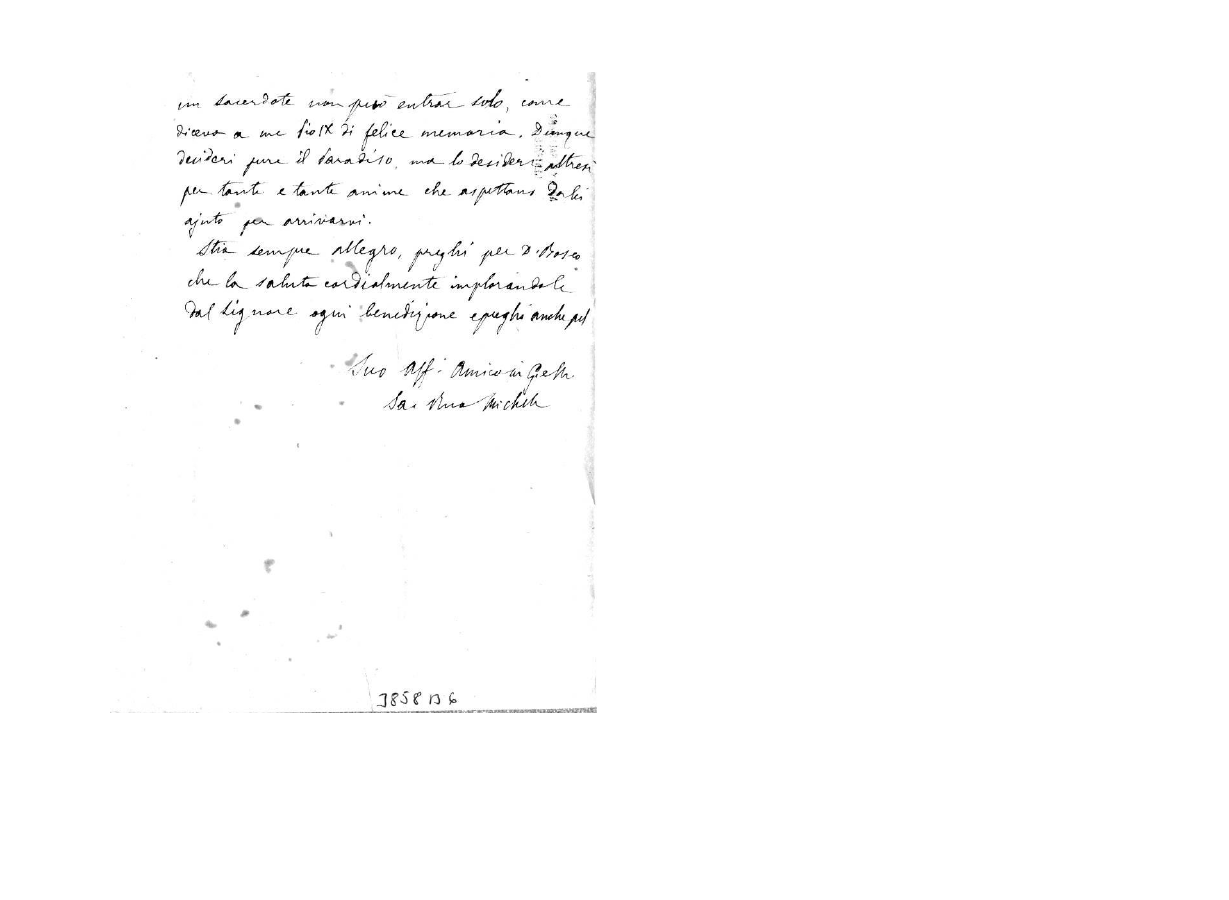 un sacerdote non può entrar solo, come
diceva a me Pio IX di felice memoria. Dunque
desideri pure il Paradiso, ma lo desideri altresì
per tante e tante anime che aspettano da lei
ajuto per arrivarvi.
Stia sempre allegro, preghi per D. Bosco
che la saluta cordialmente implorandole
dal Signore ogni benedizione e preghi anche pel
Suo Aff. Amico in G.
Sac. Rua Michele
3858 B 6